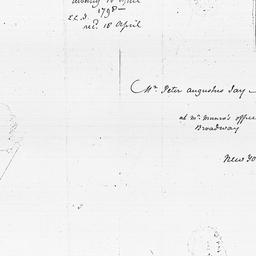 Albany 10 April
1798—
recd. 18 April
Mr. Peter Augustus Jay
at Mr. Munro's office
Broadway
New Yo